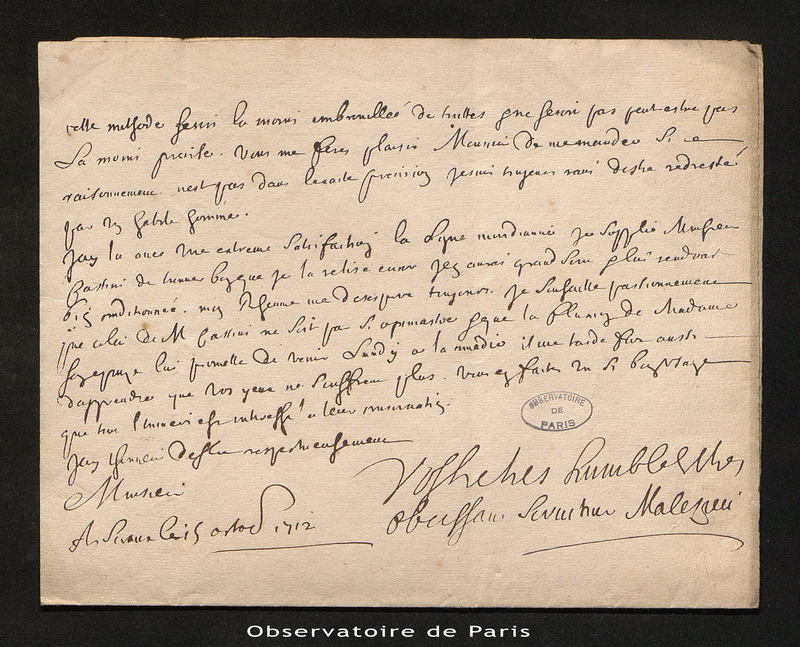 cette methode seroit la moins embrouillée de toutes qui ne seroit pas peut estre pas
la moins precise. Vous me feres plaisir Monsieur de me mander si ce
raisonnement nest pas dans la precision je suis toujours ravi destre redressé
par un habile homme.
Jay lu avec une extreme satisfaction la ligne meridienne je supplie Monsieur
Cassini de trouver bon que je la relise encore jen aurai grand soin
conditionnée. mon Rhume me desespere toujours. je souhaitte passionnement
que celui de M Cassini ne soit pas si opiniastre et que la fluxion de Madame
son epouse lui permette de venir Lundy a la comedie il me tarde fort aussi
dapprendre que vos yeux ne souffrent plus. Vous en faites un si bon usage
que tout l'univers est interessé a leur conservation.
Jay lhonneur destre respectueusement
Monsieur
Vostre tres humble et tres
A Sceaux le 15 octob 1712
obeissant serviteur Malezieu
OBSERVATOIRE
DE
PARIS
Observatoire de Paris